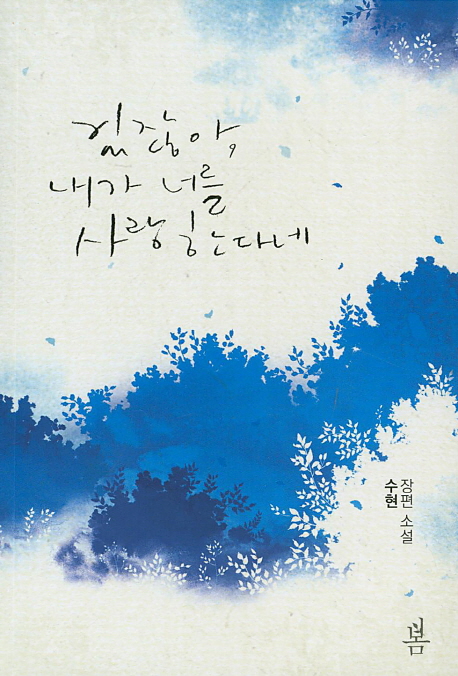 있잖아,
내가 너를
사랑한다네
수현
장편 소설
봄